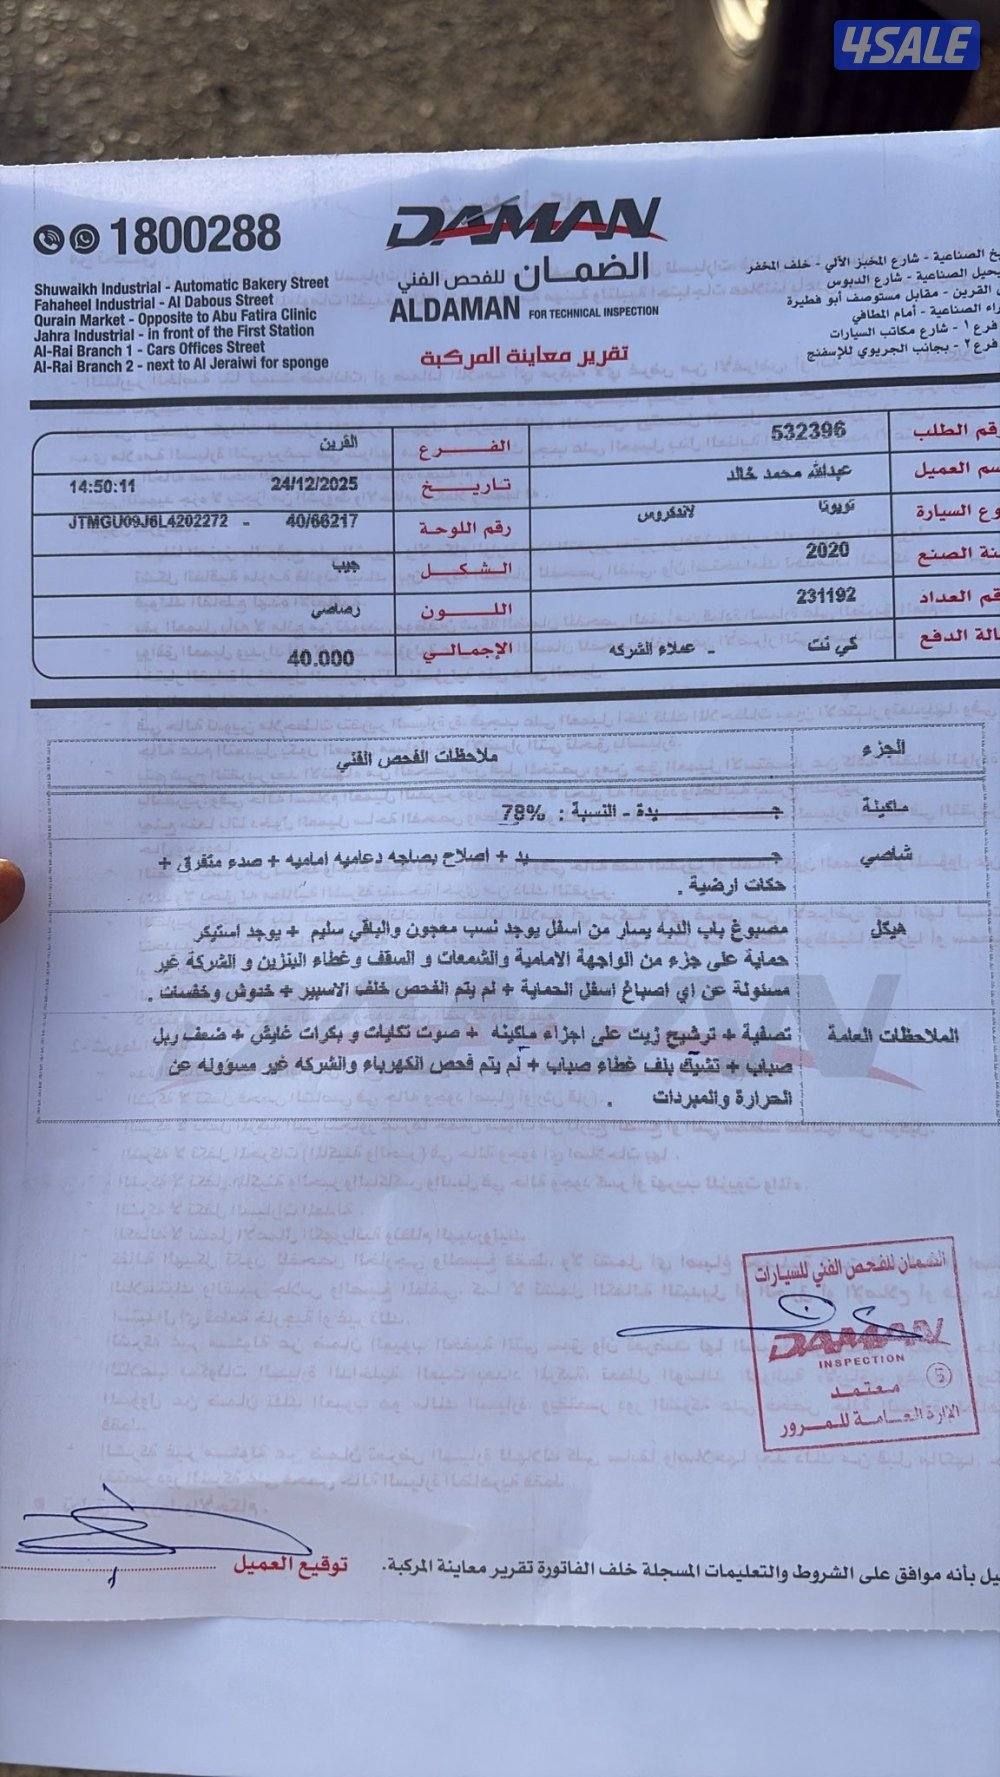 4SALE
1800288
DAMAN
الضمـــان للفحص الفني
ALDAMAN FOR TECHNICAL INSPECTION
تقرير معاينة المركبة
Shuwaikh Industrial - Automatic Bakery Street
Fahaheel Industrial - Al Dabous Street
Qurain Market - Opposite to Abu Fatira Clinic
Jahra Industrial - in front of the First Station
Al-Rai Branch 1 - Cars Offices Street
Al-Rai Branch 2 - next to Al Jeraiwi for sponge
الصناعية - شارع المخبز الآلي - خلف المخفر
الصناعية - شارع الدبوس
القرين - مقابل مستوصف أبو فطيرة
الصناعية - أمام المطافي
فرع ١ - شارع مكاتب السيارات
فرع ٢ - بجانب الجريوي للإسفنج
رقم الطلب 532396 الفـــرع القرين
اسم العميل عبدالله محمد خالد تاريـــخ 24/12/2025 14:50:11
نوع السيارة تويوتا لاندكروس رقم اللوحة 40/66217 - JTMGU09J6L4202272
سنة الصنع 2020 الشـكـل جيب
رقم العداد 231192 اللـــون رصاصي
حالة الدفع كي نت - عملاء الشركه الإجمالـي 40.000
الجزء ملاحظات الفحص الفني
ماكينة جـــــيدة - النسبة : 78%
شاصي جـــــيد + اصلاح بصاجه دعاميه اماميه + صدء متفرق +
حكات ارضية .
هيكل مصبوغ باب الدبه يسار من اسفل يوجد نسب معجون والباقي سليم + يوجد استيكر
حماية على جزء من الواجهة الامامية والشمعات و السقف وغطاء البنزين و الشركة غير
مسئولة عن اي اصباغ اسفل الحماية + لم يتم الفحص خلف الاسبير + خدوش وخفسات .
الملاحظات العامة تصفية + ترشيح زيت على اجزاء ماكينه + صوت تكايات و بكرات غايش + ضعف ربل
صباب + تشيك بلف غطاء صباب + لم يتم فحص الكهرباء والشركه غير مسؤوله عن
الحرارة والمبردات .
الضمان للفحص الفني للسيارات
DAMAN
INSPECTION
5
معتمد
الادارة العـامـة للمرور
بأنه موافق على الشروط والتعليمات المسجلة خلف الفاتورة تقرير معاينة المركبة. توقيع العميل